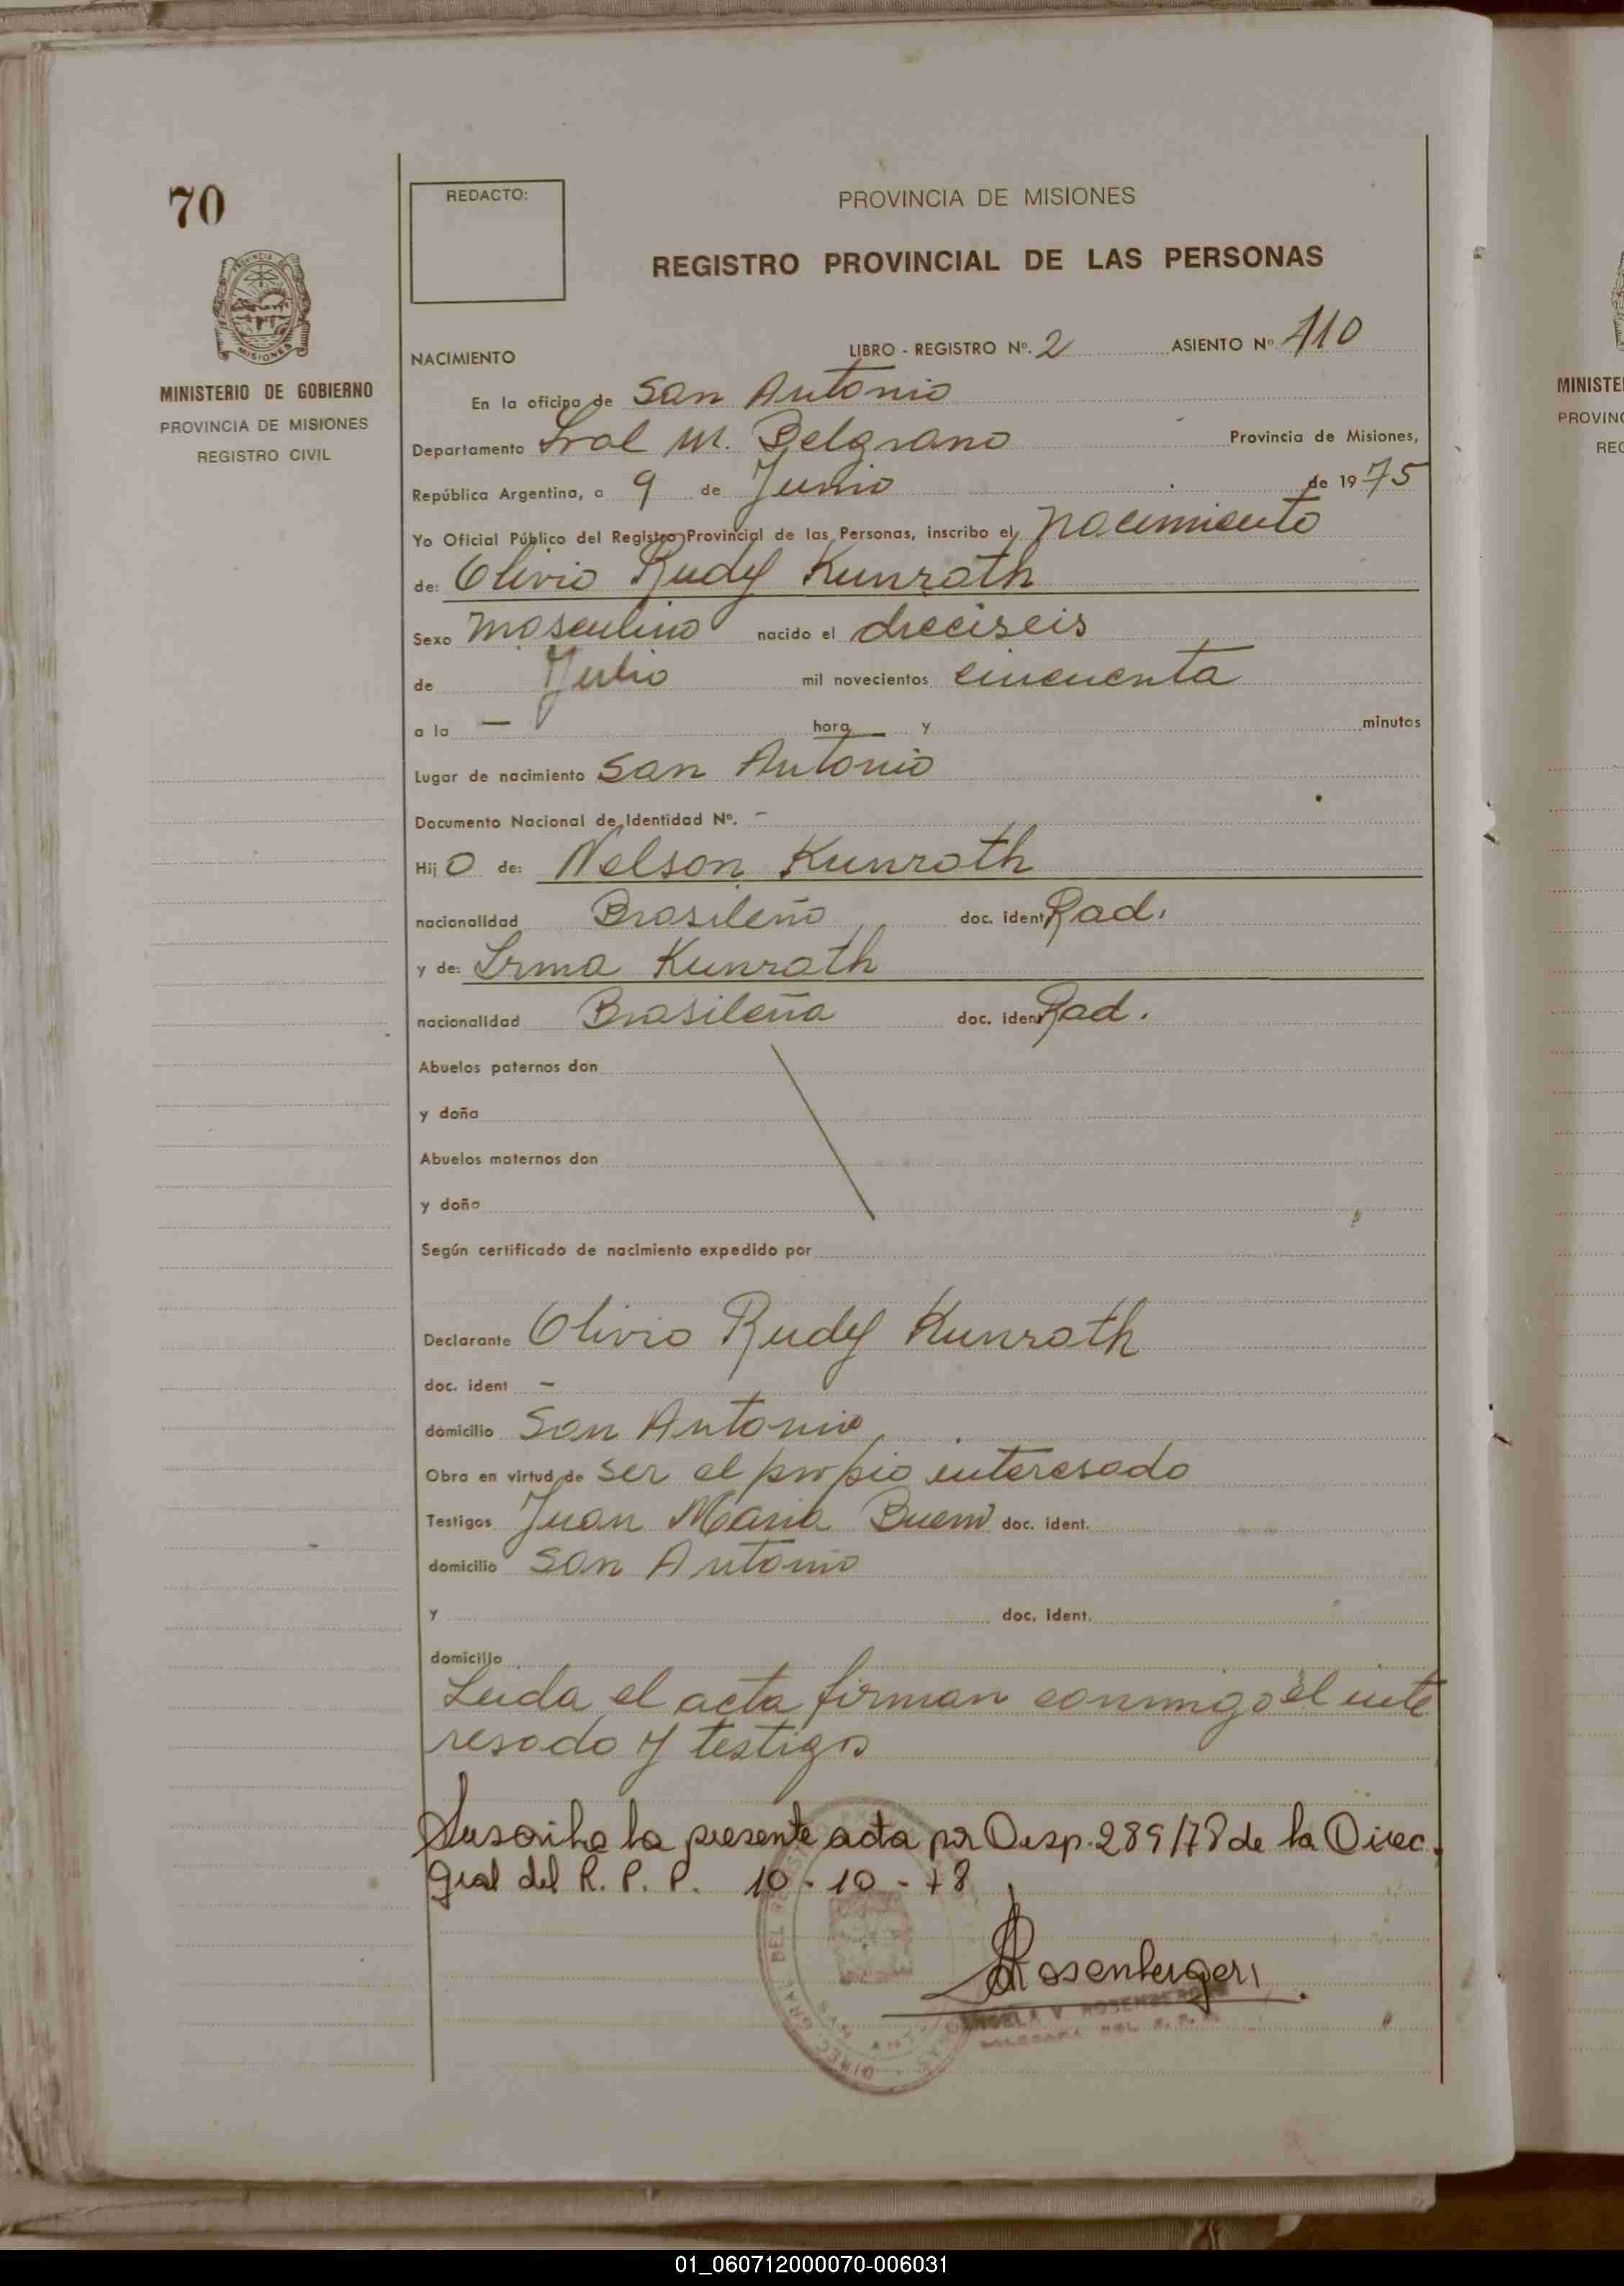 70
REDACTO:
PROVINCIA DE MISIONES
REGISTRO PROVINCIAL DE LAS PERSONAS
MINISTERIO DE GOBIERNO
PROVINCIA DE MISIONES
REGISTRO CIVIL
NACIMIENTO LIBRO - REGISTRO Nº. 2 ASIENTO Nº 110
En la oficina de San Antonio
Departamento Gral M. Belgrano Provincia de Misiones,
República Argentina, a 9 de Junio de 1975
Yo Oficial Público del Registro Provincial de las Personas, inscribo el nacimiento
de: Olivio Rudy Kunrath
Sexo masculino nacido el dieciseis
de Julio mil novecientos cincuenta
a la — hora — y minutos
Lugar de nacimiento San Antonio
Documento Nacional de Identidad Nº. -
Hijo de: Nelson Kunrath
nacionalidad Brasileño doc. ident Rad.
y de: Irma Kunrath
nacionalidad Brasileña doc. ident Rad.
Abuelos paternos don
y doña
Abuelos maternos don
y doña
Según certificado de nacimiento expedido por
Declarante Olivio Rudy Kunrath
doc. ident -
domicilio San Antonio
Obra en virtud de ser el propio interesado
Testigos Juan Maria Bueno doc. ident.
domicilio San Antonio
y doc. ident.
domicilio
Leida el acta firman conmigo el inte
resado y testigos
Suscribo la presente acta por Disp. 289/78 de la Direc.
Gral del R. P. P. 10-10-78
Rosenberger
ANGELA V. ROSENBERGER
DELEGADA DEL R. P. P.
MINISTE
PROVINC
REG
01_060712000070-006031